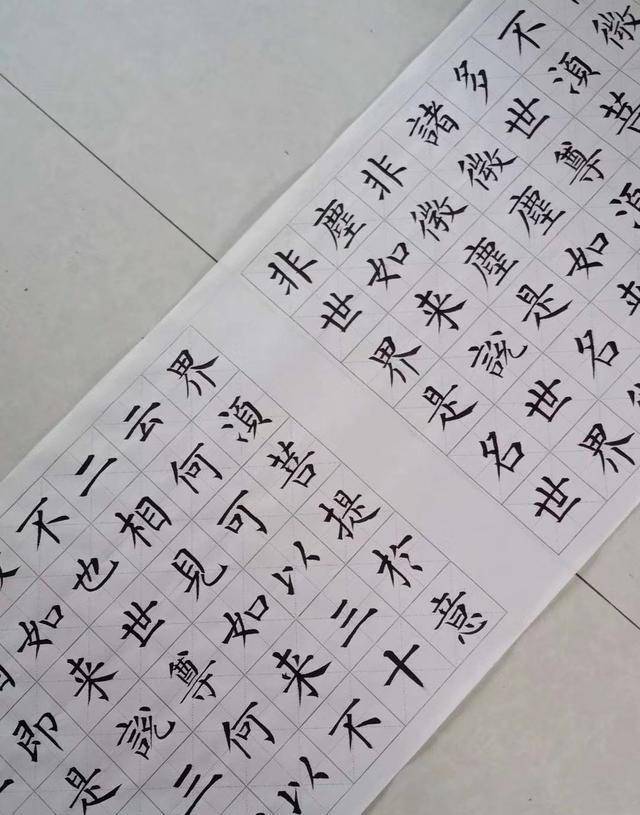 微
不須菩
多世尊須
諸微塵如来
非微塵是名
塵如来說世界
非世界是名世
界須菩提於意
云何可以三十
二相見如来不
不也世尊何以
如来說三
即是